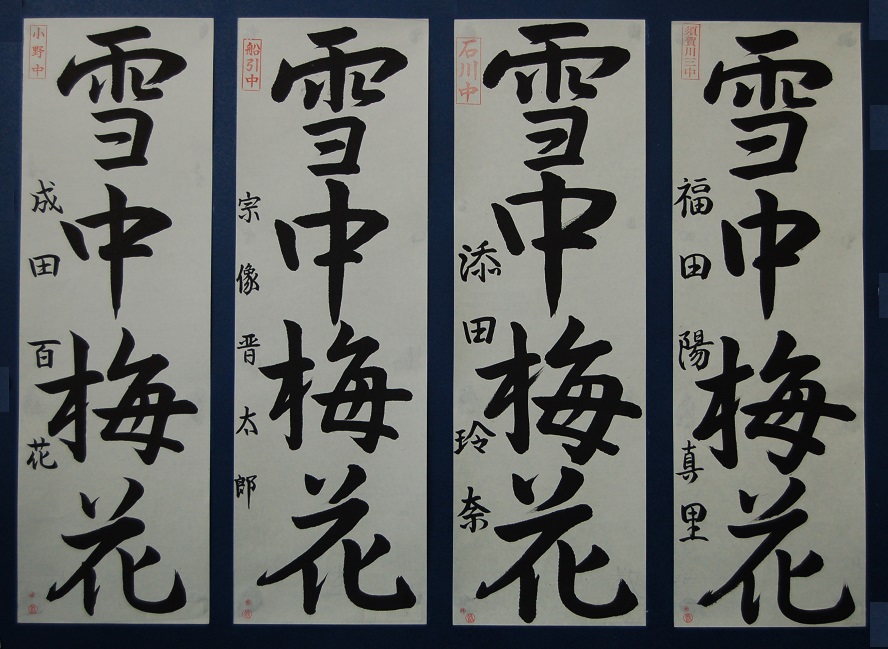 須賀川三中
雪中梅花
福田陽真里
石川中
雪中梅花
添田玲奈
船引中
雪中梅花
宗像晋太郎
小野中
雪中梅花
成田百花